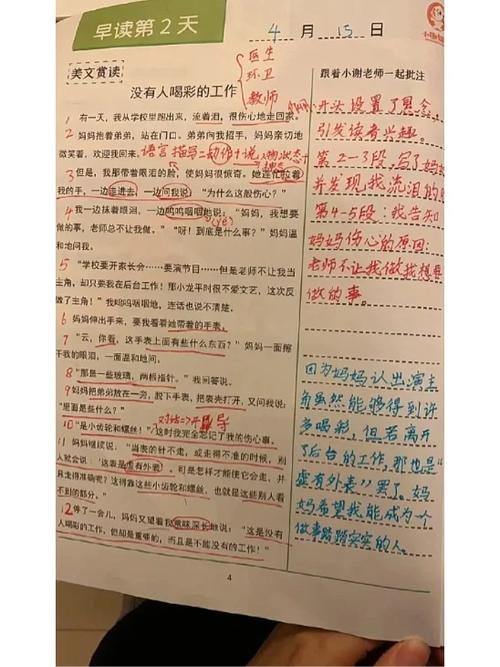 早读第2天
4月15日
美文赏读
没有人喝彩的工作
医生
环卫
教师
跟着小谢老师一起批注
1 有一天，我从学校里跑出来，流着泪，很伤心地走回家。
2 妈妈抱着弟弟，站在门口。弟弟向我招手，妈妈亲切地
微笑着，欢迎我回来。
语言描写
3 但是，我那带着泪的脸，使妈妈很惊奇。她连忙拉着
我的手，一边走进去，一边问我说：“为什么这般伤心？”
4 我一边抹着眼泪，一边呜呜咽咽地说：“妈妈，我想要
(yè)
做的事，老师总不让我做。”“呀！到底是什么事？”妈妈温
和地问我。
5 “学校要开家长会……要演节目……但是老师不让我当
主角，却只要我在后台工作！那小龙平时很不爱文艺，这次反
做了主角！”我呜呜咽咽地，连话也说不清楚。
6 妈妈伸出手来，要我看看她带着的手表。
7 “云，你看，这手表上面有些什么东西？”妈妈一面擦
干我的眼泪，一面温和地问。
8 “那是一些玻璃，两根指针。”我回答说。
9 妈妈把弟弟放在一旁，脱下手表，把表壳打开，又问我说：
“里面是些什么？”
10 “是小齿轮和螺丝！”这时我完全忘记了我的伤心事。
11 妈妈继续说：“当表的针不走，或走得不准的时候，别
人就会说：‘这表是虚有外表’。可是怎样才能使它会走，并
且走得准确呢？这得靠这些小齿轮和螺丝，也就是这些别人看
不到的部分。”
12 停了一会儿，妈妈又望着我意味深长地说：“这是没有
人喝彩的工作，他却是重要的，而且是不能没有的工作！”
开头设置了悬念，
引发读者兴趣。
第2-3段，写了妈妈
并发现我流泪的
第4-5段：我告知
妈妈伤心的原因：
老师不让我做我想要
做的事。
因为妈妈认出演主
角虽然能够得到许
多喝彩，但若离开
了后台的工作，那也是“
虚有外表”罢了。妈
妈希望我能成为一个
做事踏踏实实的人。
4